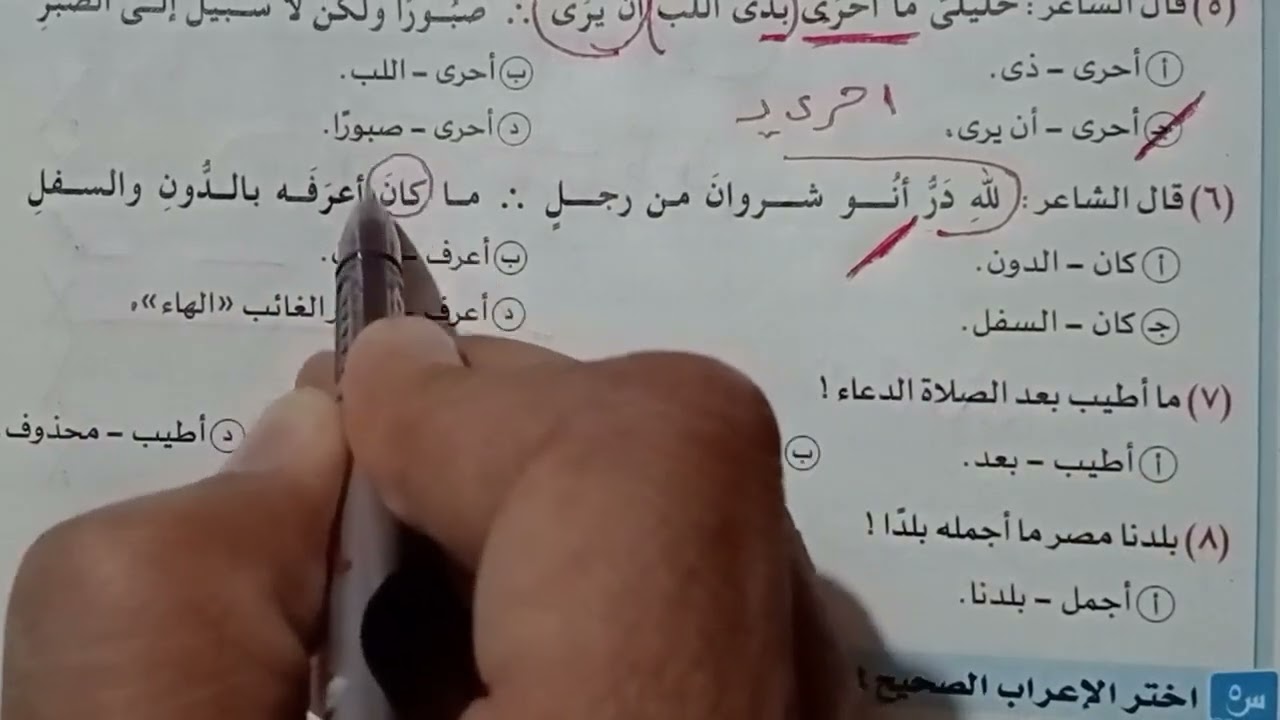 (٥) قال الشاعر: خليلىَّ ما أحرَى بذى اللب أن يرَى ∴ صبُورًا ولكن لا سبيل إلى الصبرِ
أ أحرى – ذى.
ب أحرى – اللب.
احرى يـ
جـ أحرى – أن يرى.
د أحرى – صبورًا.
(٦) قال الشاعر: للهِ دَرُّ أنُو شروانَ من رجلٍ ∴ ما كانَ أعرَفَه بالدُّونِ والسفلِ
أ كان – الدون.
ب أعرف –
جـ كان – السفل.
د أعرف – الغائب «الهاء».
(٧) ما أطيب بعد الصلاة الدعاء!
أ أطيب – بعد.
ب
د أطيب – محذوف
(٨) بلدنا مصر ما أجمله بلدًا!
أ أجمل – بلدنا.
س٥ اختر الإعراب الصحيح: